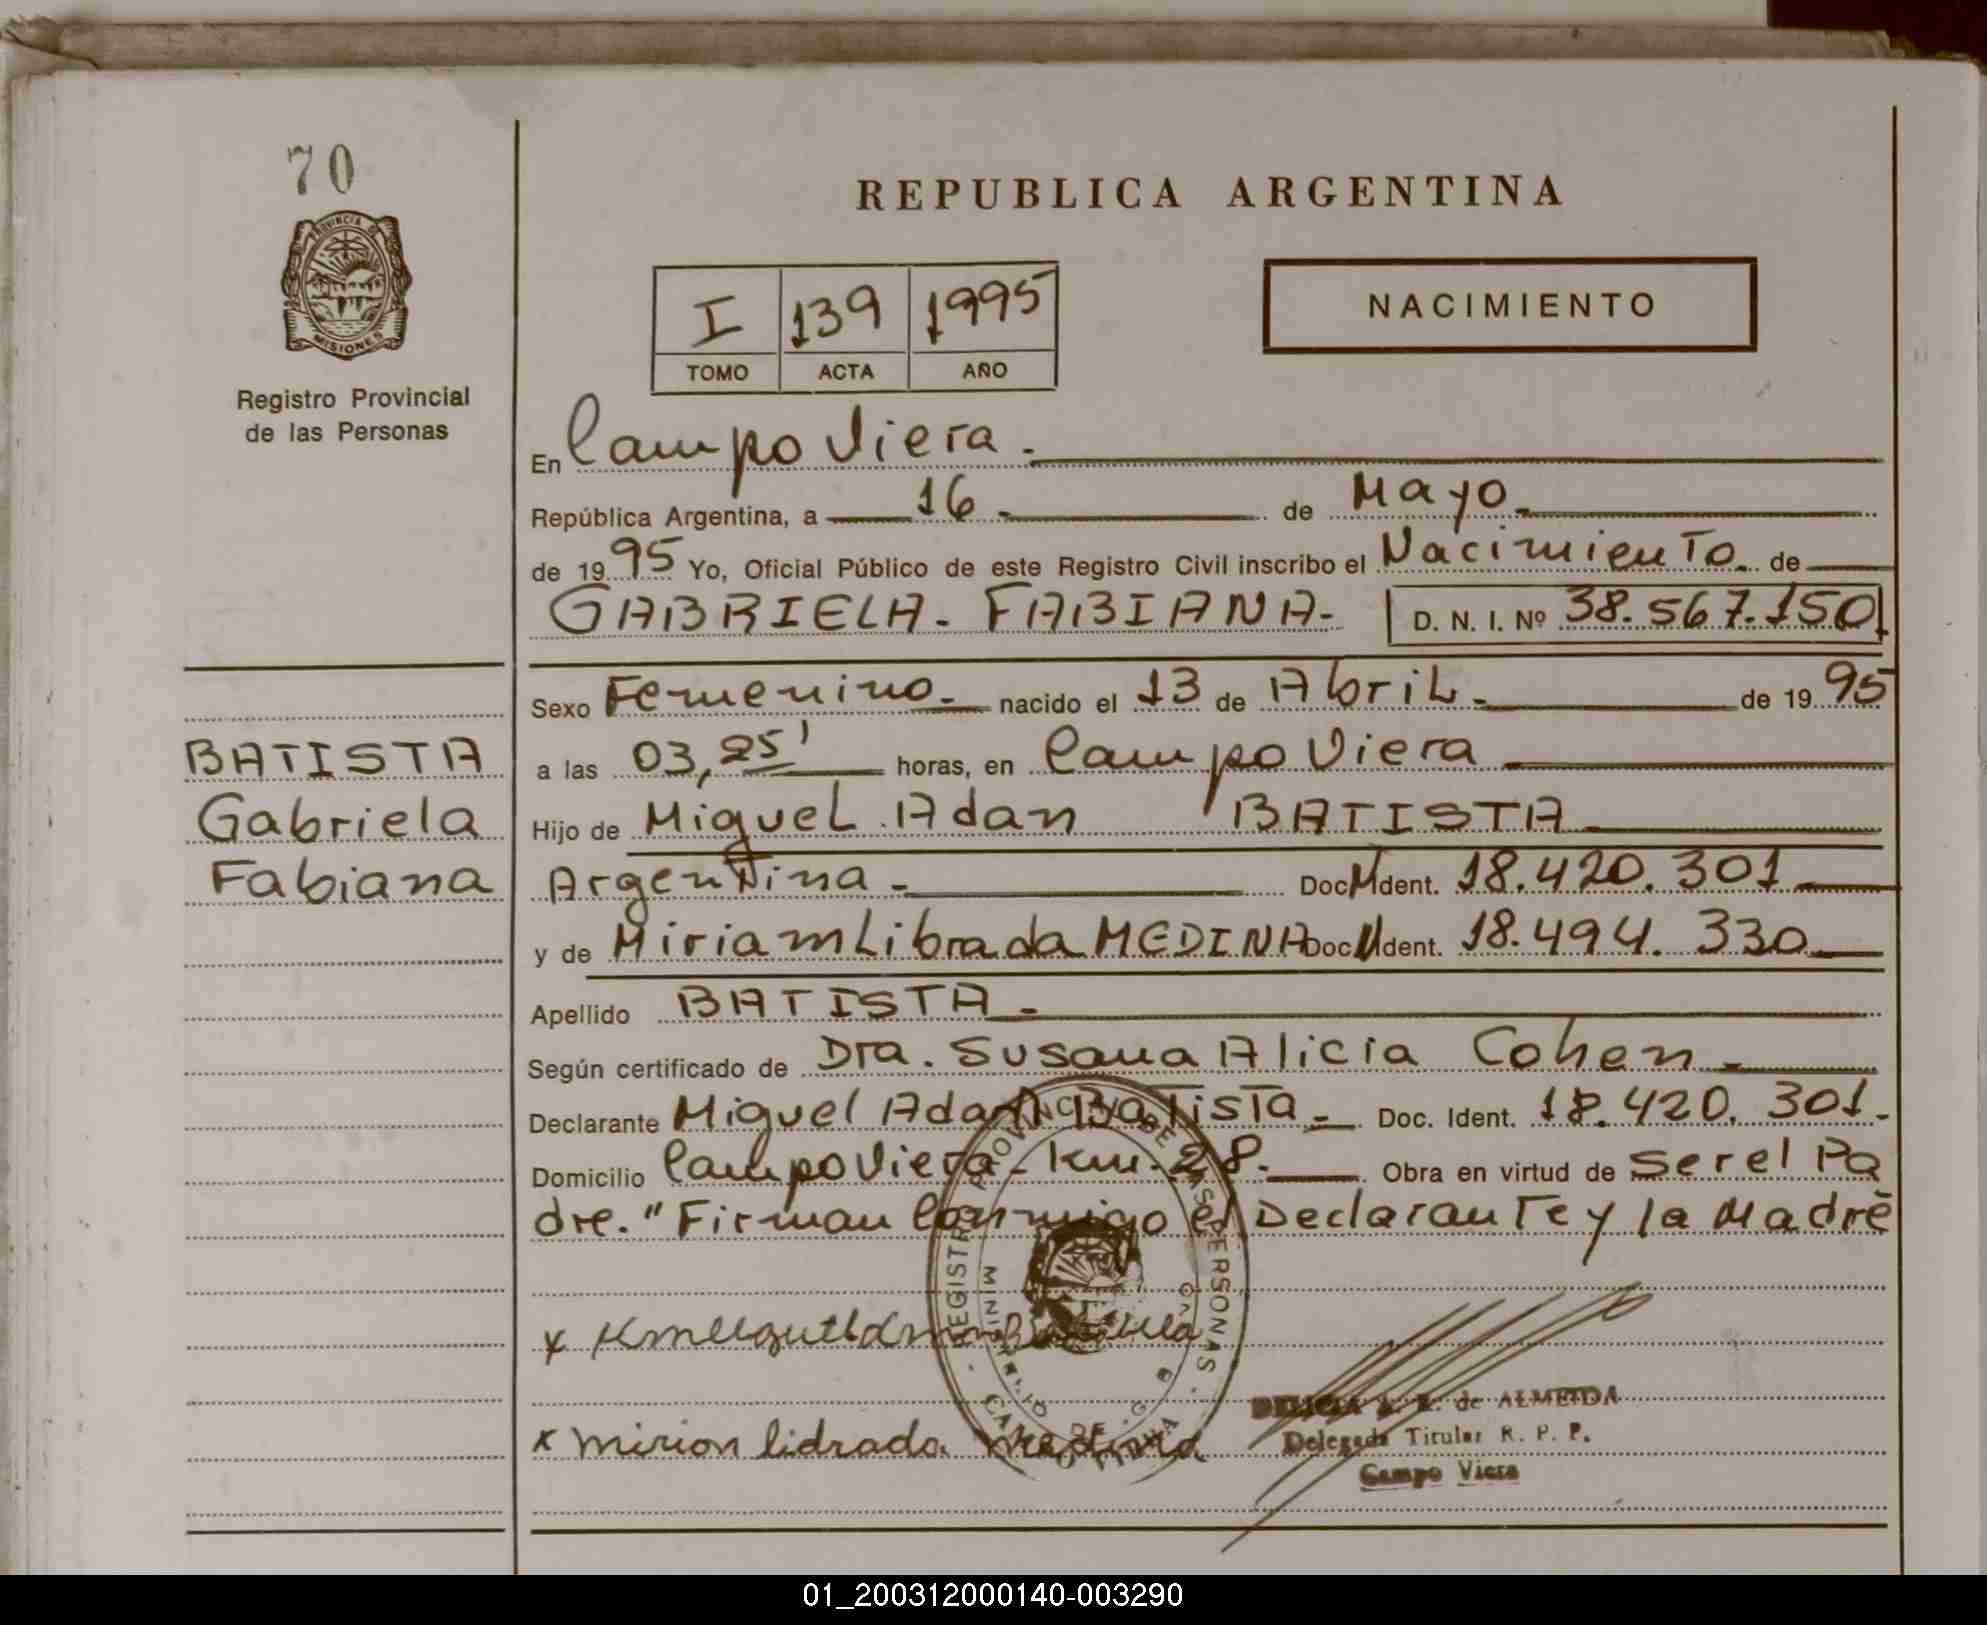 70
PROVINCIA DE
MISIONES
Registro Provincial
de las Personas
BATISTA
Gabriela
Fabiana
REPUBLICA ARGENTINA
NACIMIENTO
I 139 1995
TOMO ACTA AÑO
En Campo Viera.
República Argentina, a 16 de Mayo
de 1995 Yo, Oficial Público de este Registro Civil inscribo el Nacimiento de
GABRIELA. FABIANA- D. N. I. Nº 38.567.150
Sexo Femenino nacido el 13 de Abril de 1995
a las 03,25' horas, en Campo Viera
Hijo de Miguel Adan BATISTA
Argentina Doc. Ident. 18.420.301
y de Miriam Librada MEDINA Doc. Ident. 18.494.330
Apellido BATISTA
Según certificado de Dra. Susana Alicia Cohen
Declarante Miguel Adan Batista Doc. Ident. 18.420.301.
Domicilio Campo Viera - km. 28. Obra en virtud de ser el Pa
dre." Firman Conmigo el Declarante y la Madre
REGISTRO PROVINCIAL DE LAS PERSONAS
CAMPO VIERA
x
x mirion lidrada medina
de ALMEIDA
Delegada Titular R. P. P.
Campo Viera
01_200312000140-003290